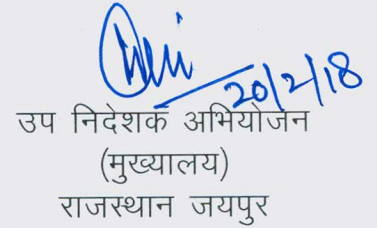 20/2/18
उप निदेशक अभियोजन
(मुख्यालय)
राजस्थान जयपुर